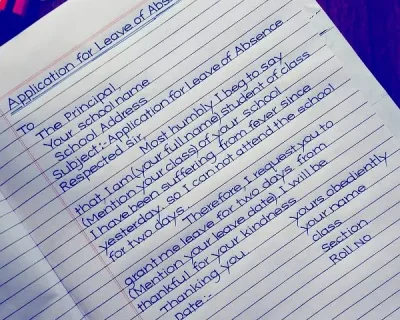 Application for Leave of Abs
To
The Principal,
Your school name
School Address
Subject:- Application for Leave of Absence
Respected Sir,
Most humbly I beg to say
that, I am (your full name) student of class
(Mention your class) of your school
I have been suffering from fever since
yesterday, so I can not attend the school
for two days.
Therefore, I request you to
grant me leave for two days from
(Mention your leave date). I will be
thankful for your kindness
Thanking you
yours obediently
your name
class
section
Roll No
Date:-